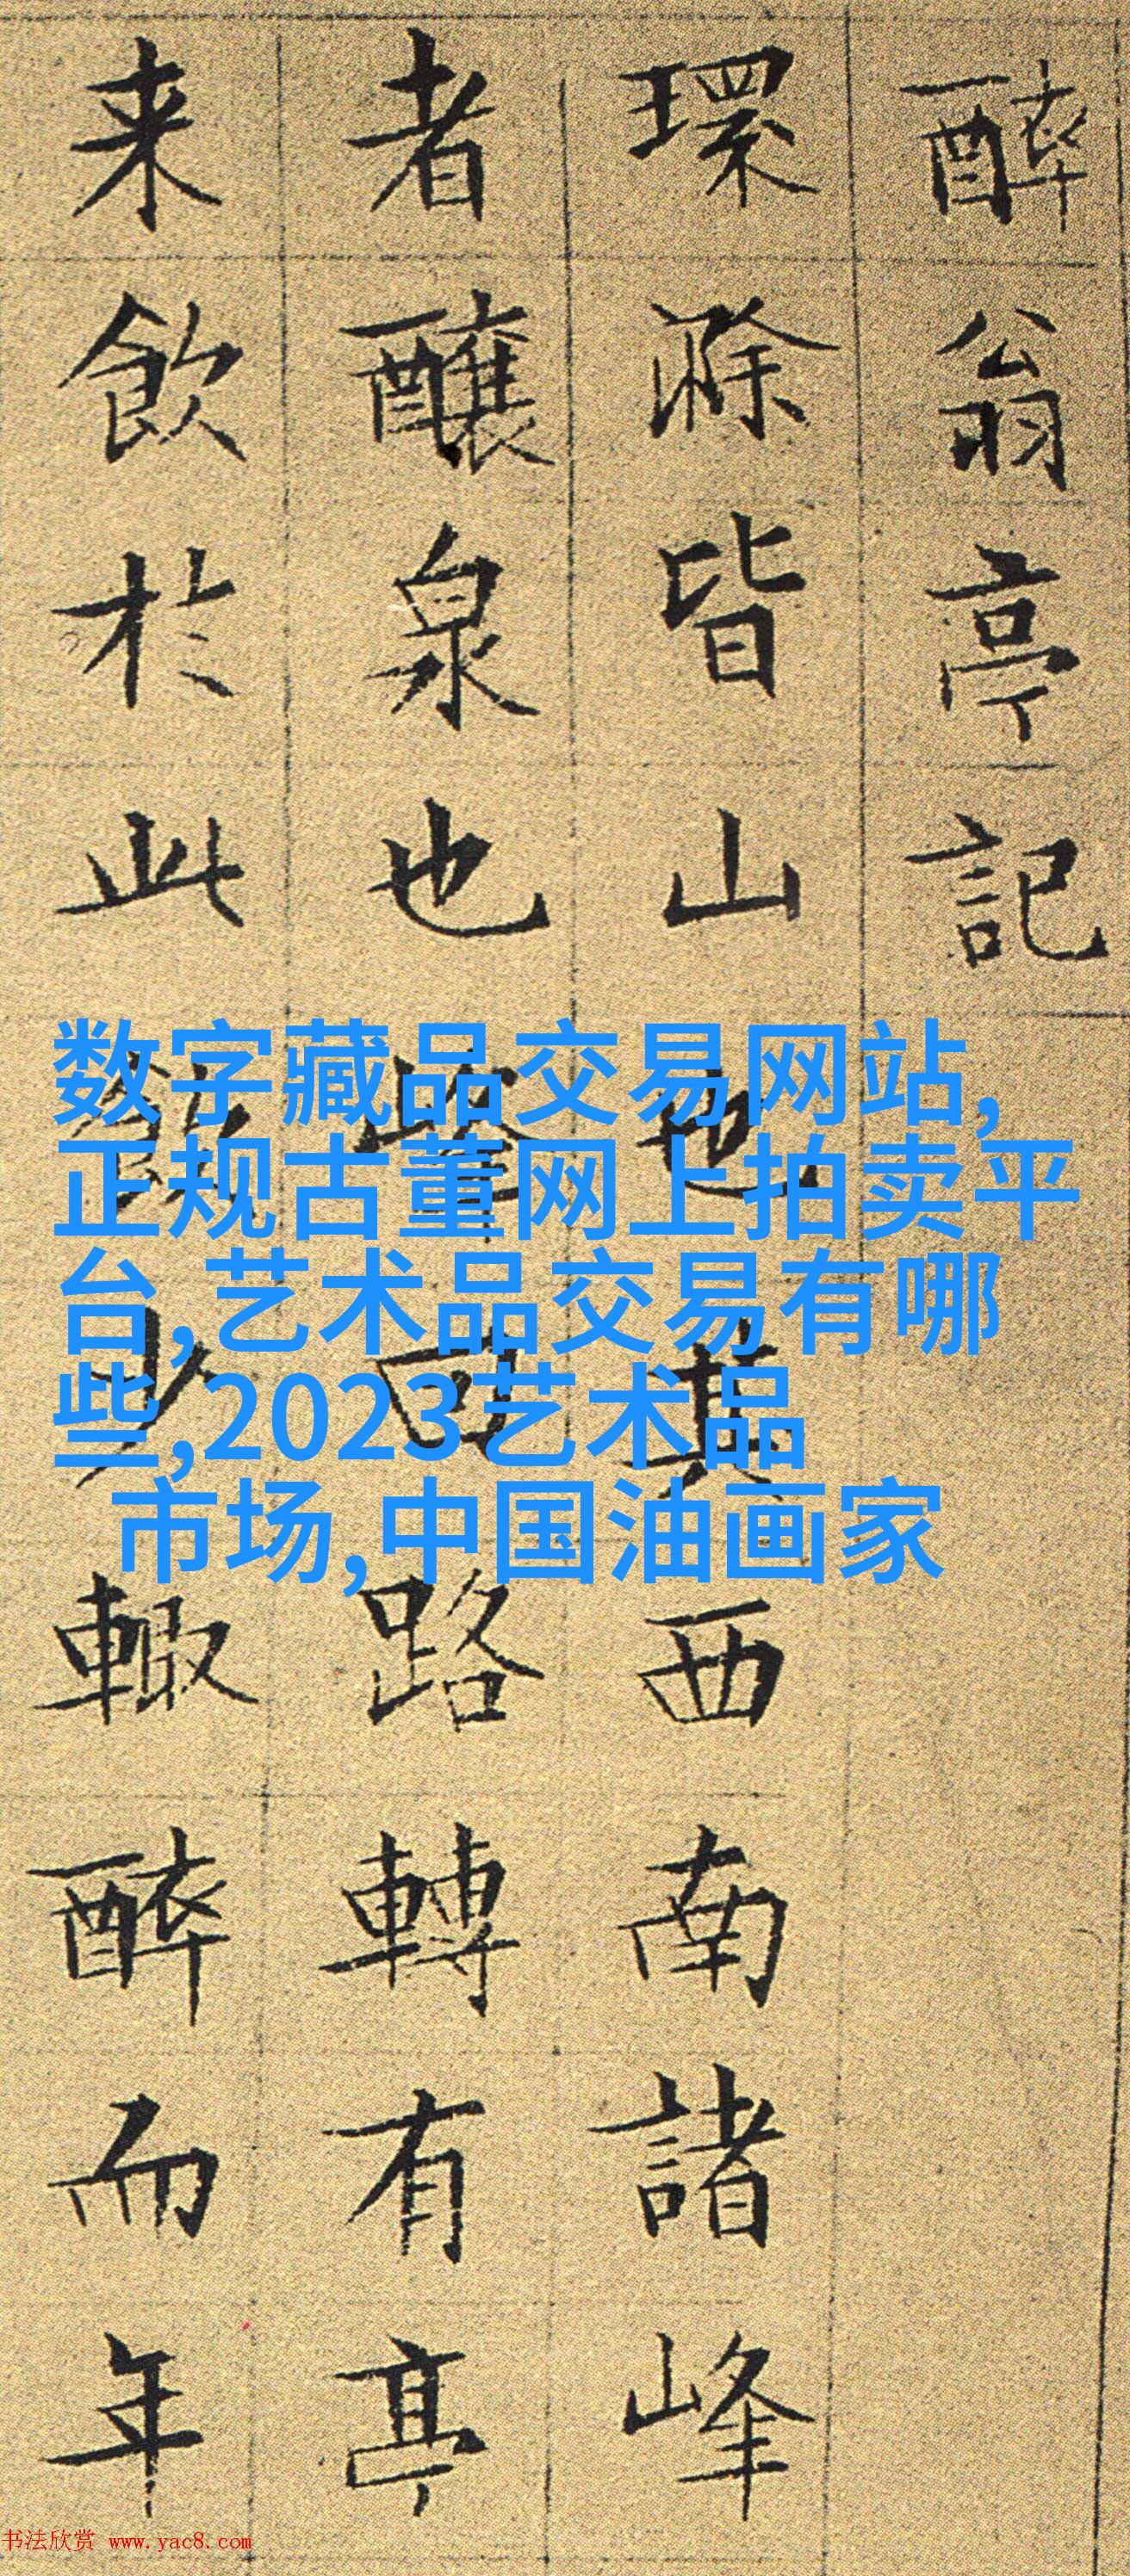 醉翁亭記
環滁皆山也其西南諸峰
者釀泉也峯回路轉有亭
来飲於此飲少輒醉而年
数字藏品交易网站,
正规古董网上拍卖平
台,艺术品交易有哪
些,2023艺术品
市场,中国油画家
书法欣赏 www.yac8.com